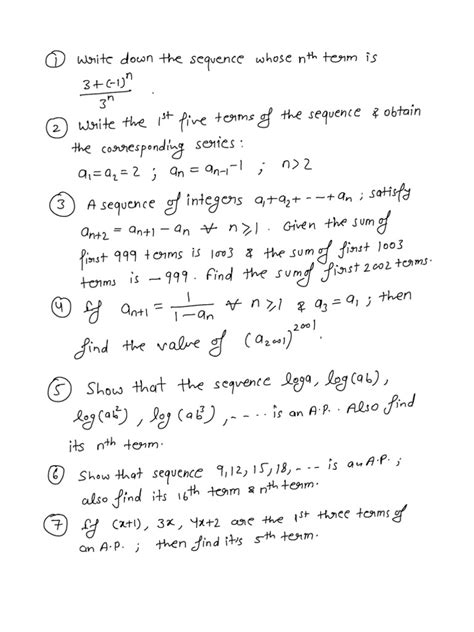 ① Write down the sequence whose nth term is
3+(-1)^n
3^n .
② Write the 1st five terms of the sequence & obtain
the corresponding series :
a₁=a₂=2 ; aₙ = aₙ₋₁-1 ; n>2
③ A sequence of integers a₁+a₂+---+aₙ ; satisfy
aₙ₊₂ = aₙ₊₁ - aₙ ∀ n≥1. Given the sum of
first 999 terms is 1003 & the sum of first 1003
terms is -999. Find the sum of first 2002 terms.
④ If aₙ₊₁ = 1/(1-aₙ) ∀ n≥1 & a₃=a₁ ; then
find the value of (a₂₀₀₁)^2001.
⑤ Show that the sequence loga, log(ab),
log(ab²), log(ab³), ----.. is an A.P.. Also find
its nth term.
⑥ Show that sequence 9,12,15,18,--.. is an A.P. ;
also find its 16th term & nth term.
⑦ If (x+1), 3x, 4x+2 are the 1st three terms of
an A.P. ; then find its 5th term.